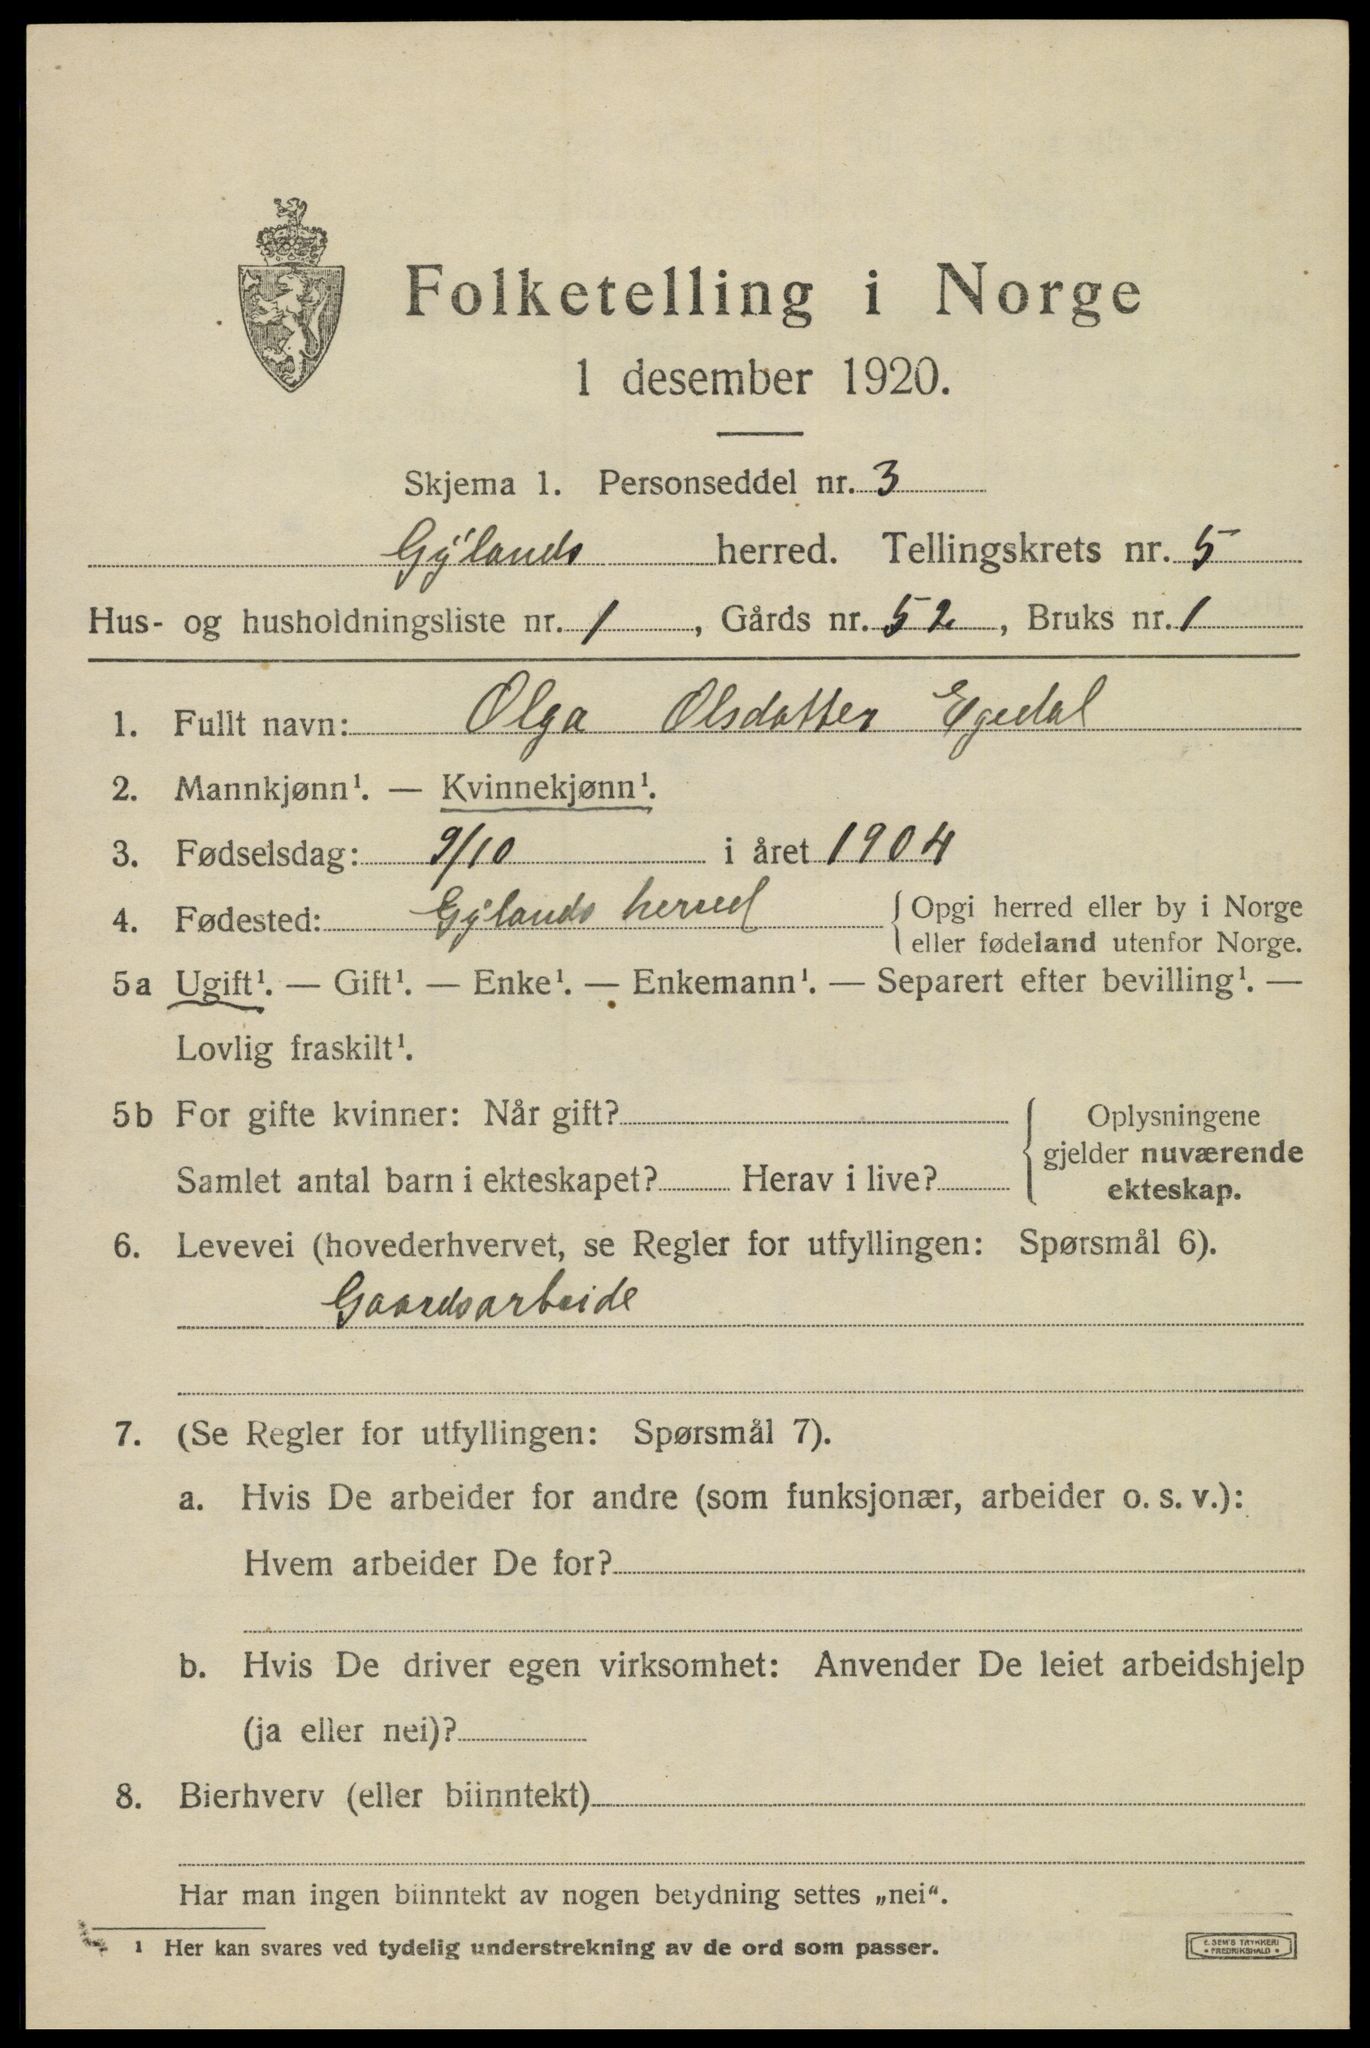 Folketelling i Norge
1 desember 1920.
Skjema 1. Personseddel nr. 3
Gylands herred. Tellingskrets nr. 5
Hus- og husholdningsliste nr. 1, Gårds nr. 52, Bruks nr. 1
1. Fullt navn: Olga Olsdatter Egedal
2. Mannkjønn¹. — Kvinnekjønn¹.
3. Fødselsdag: 9/10 i året 1904
4. Fødested: Gylands herred { Opgi herred eller by i Norge
eller fødeland utenfor Norge.
5a Ugift¹. — Gift¹. — Enke¹. — Enkemann¹. — Separert efter bevilling¹. —
Lovlig fraskilt¹.
5b For gifte kvinner: Når gift? { Oplysningene
gjelder nuværende
Samlet antal barn i ekteskapet? Herav i live? ekteskap.
6. Levevei (hovederhvervet, se Regler for utfyllingen: Spørsmål 6).
Gaardsarbeide
7. (Se Regler for utfyllingen: Spørsmål 7).
a. Hvis De arbeider for andre (som funksjonær, arbeider o. s. v.):
Hvem arbeider De for?
b. Hvis De driver egen virksomhet: Anvender De leiet arbeidshjelp
(ja eller nei)?
8. Bierhverv (eller biinntekt)
Har man ingen biinntekt av nogen betydning settes „nei“.
¹ Her kan svares ved tydelig understrekning av de ord som passer.
E. SEM'S TRYKKERI
• FREDRIKSHALD •